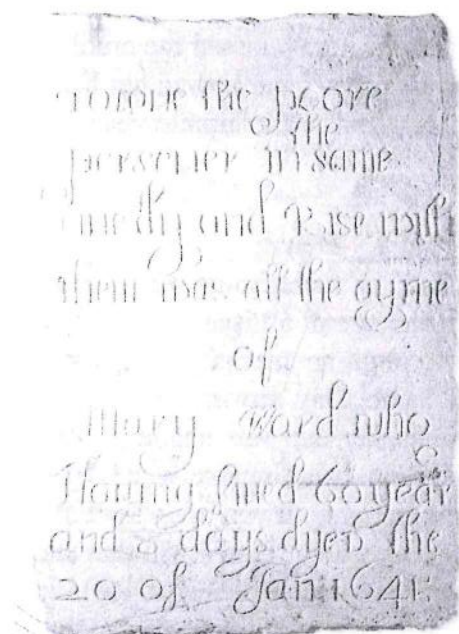 To loue the poore
the
perseuer in same
liue dy and Rise with
them was all the ayme
of
Mary Ward who
Hauing liued 60 years
and 8 days dyed the
20 of Jan 1641